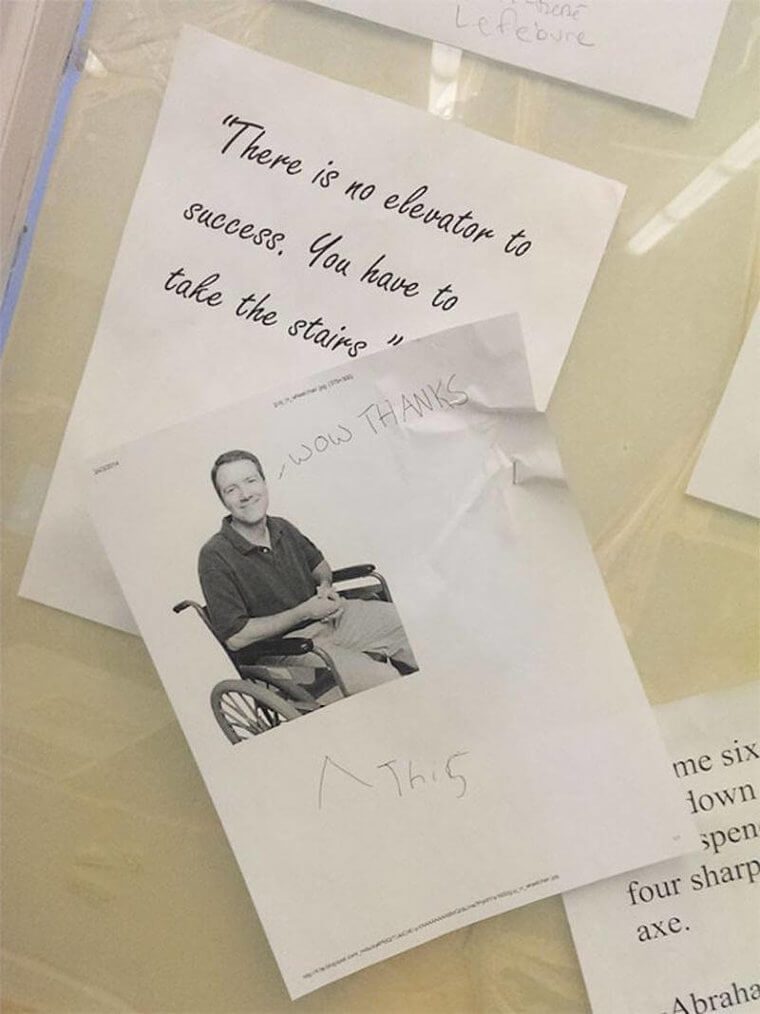 Lefebvre
"There is no elevator to
success. You have to
take the stairs."
WOW THANKS
^ This
me six
down
spen
four sharp
axe.
Abraha